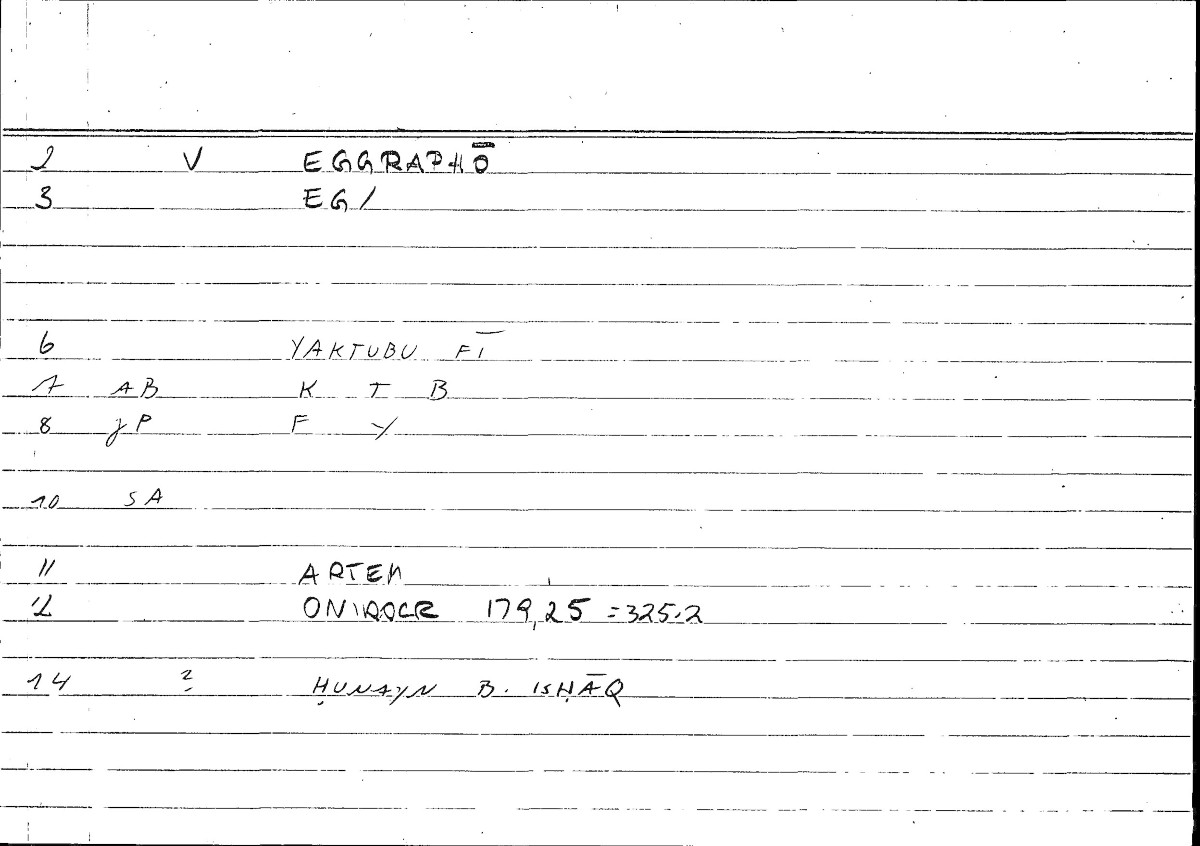 2 V EGGRAPHŌ
3 EG/
6 YAKTUBU FĪ
7 AB K T B
8 JP F Y
10 SA
11 ARTEM
12 ONIROCR 179,25 =325.2
14 ? ḤUNAYN B. ISḤĀQ